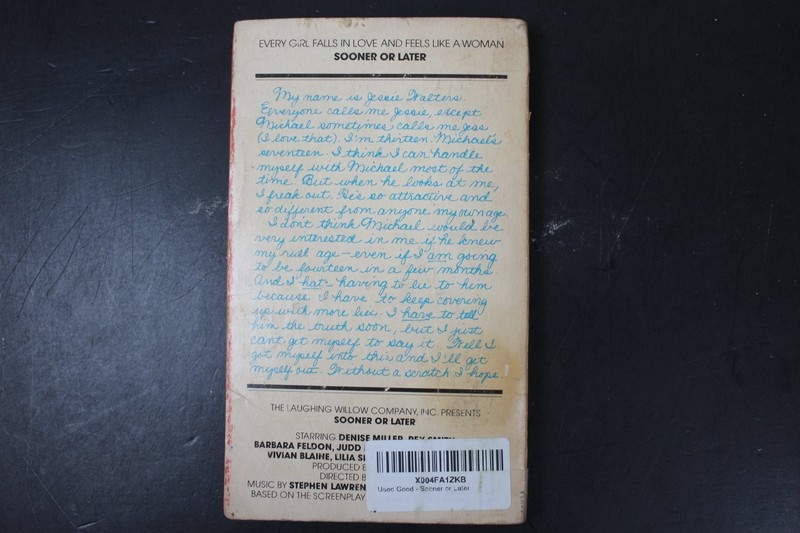 EVERY GIRL FALLS IN LOVE AND FEELS LIKE A WOMAN
SOONER OR LATER
My name is Jessie Walters.
Everyone calls me Jessie, except
Michael sometimes calls me Jess
(I love that). I'm thirteen. Michael's
seventeen. I think I can handle
myself with Michael most of the
time. But when he looks at me,
I freak out. He's so attractive and
so different from anyone my own age.
I don't think Michael would be
very interested in me if he knew
my real age—even if I am going
to be fourteen in a few months.
And I hate having to lie to him
because I have to keep covering
up with more lies. I have to tell
him the truth soon, but I just
can't get myself to say it. Well I
got myself into this and I'll get
myself out. Without a scratch I hope.
THE LAUGHING WILLOW COMPANY, INC. PRESENTS
SOONER OR LATER
STARRING DENISE MILLER, REX SMITH
BARBARA FELDON, JUDD
VIVIAN BLAINE, LILIA
PRODUCED
DIRECTED
MUSIC BY STEPHEN
BASED ON THE SCREENPLAY
X004FA1ZKB
Used Good - Sooner or Later